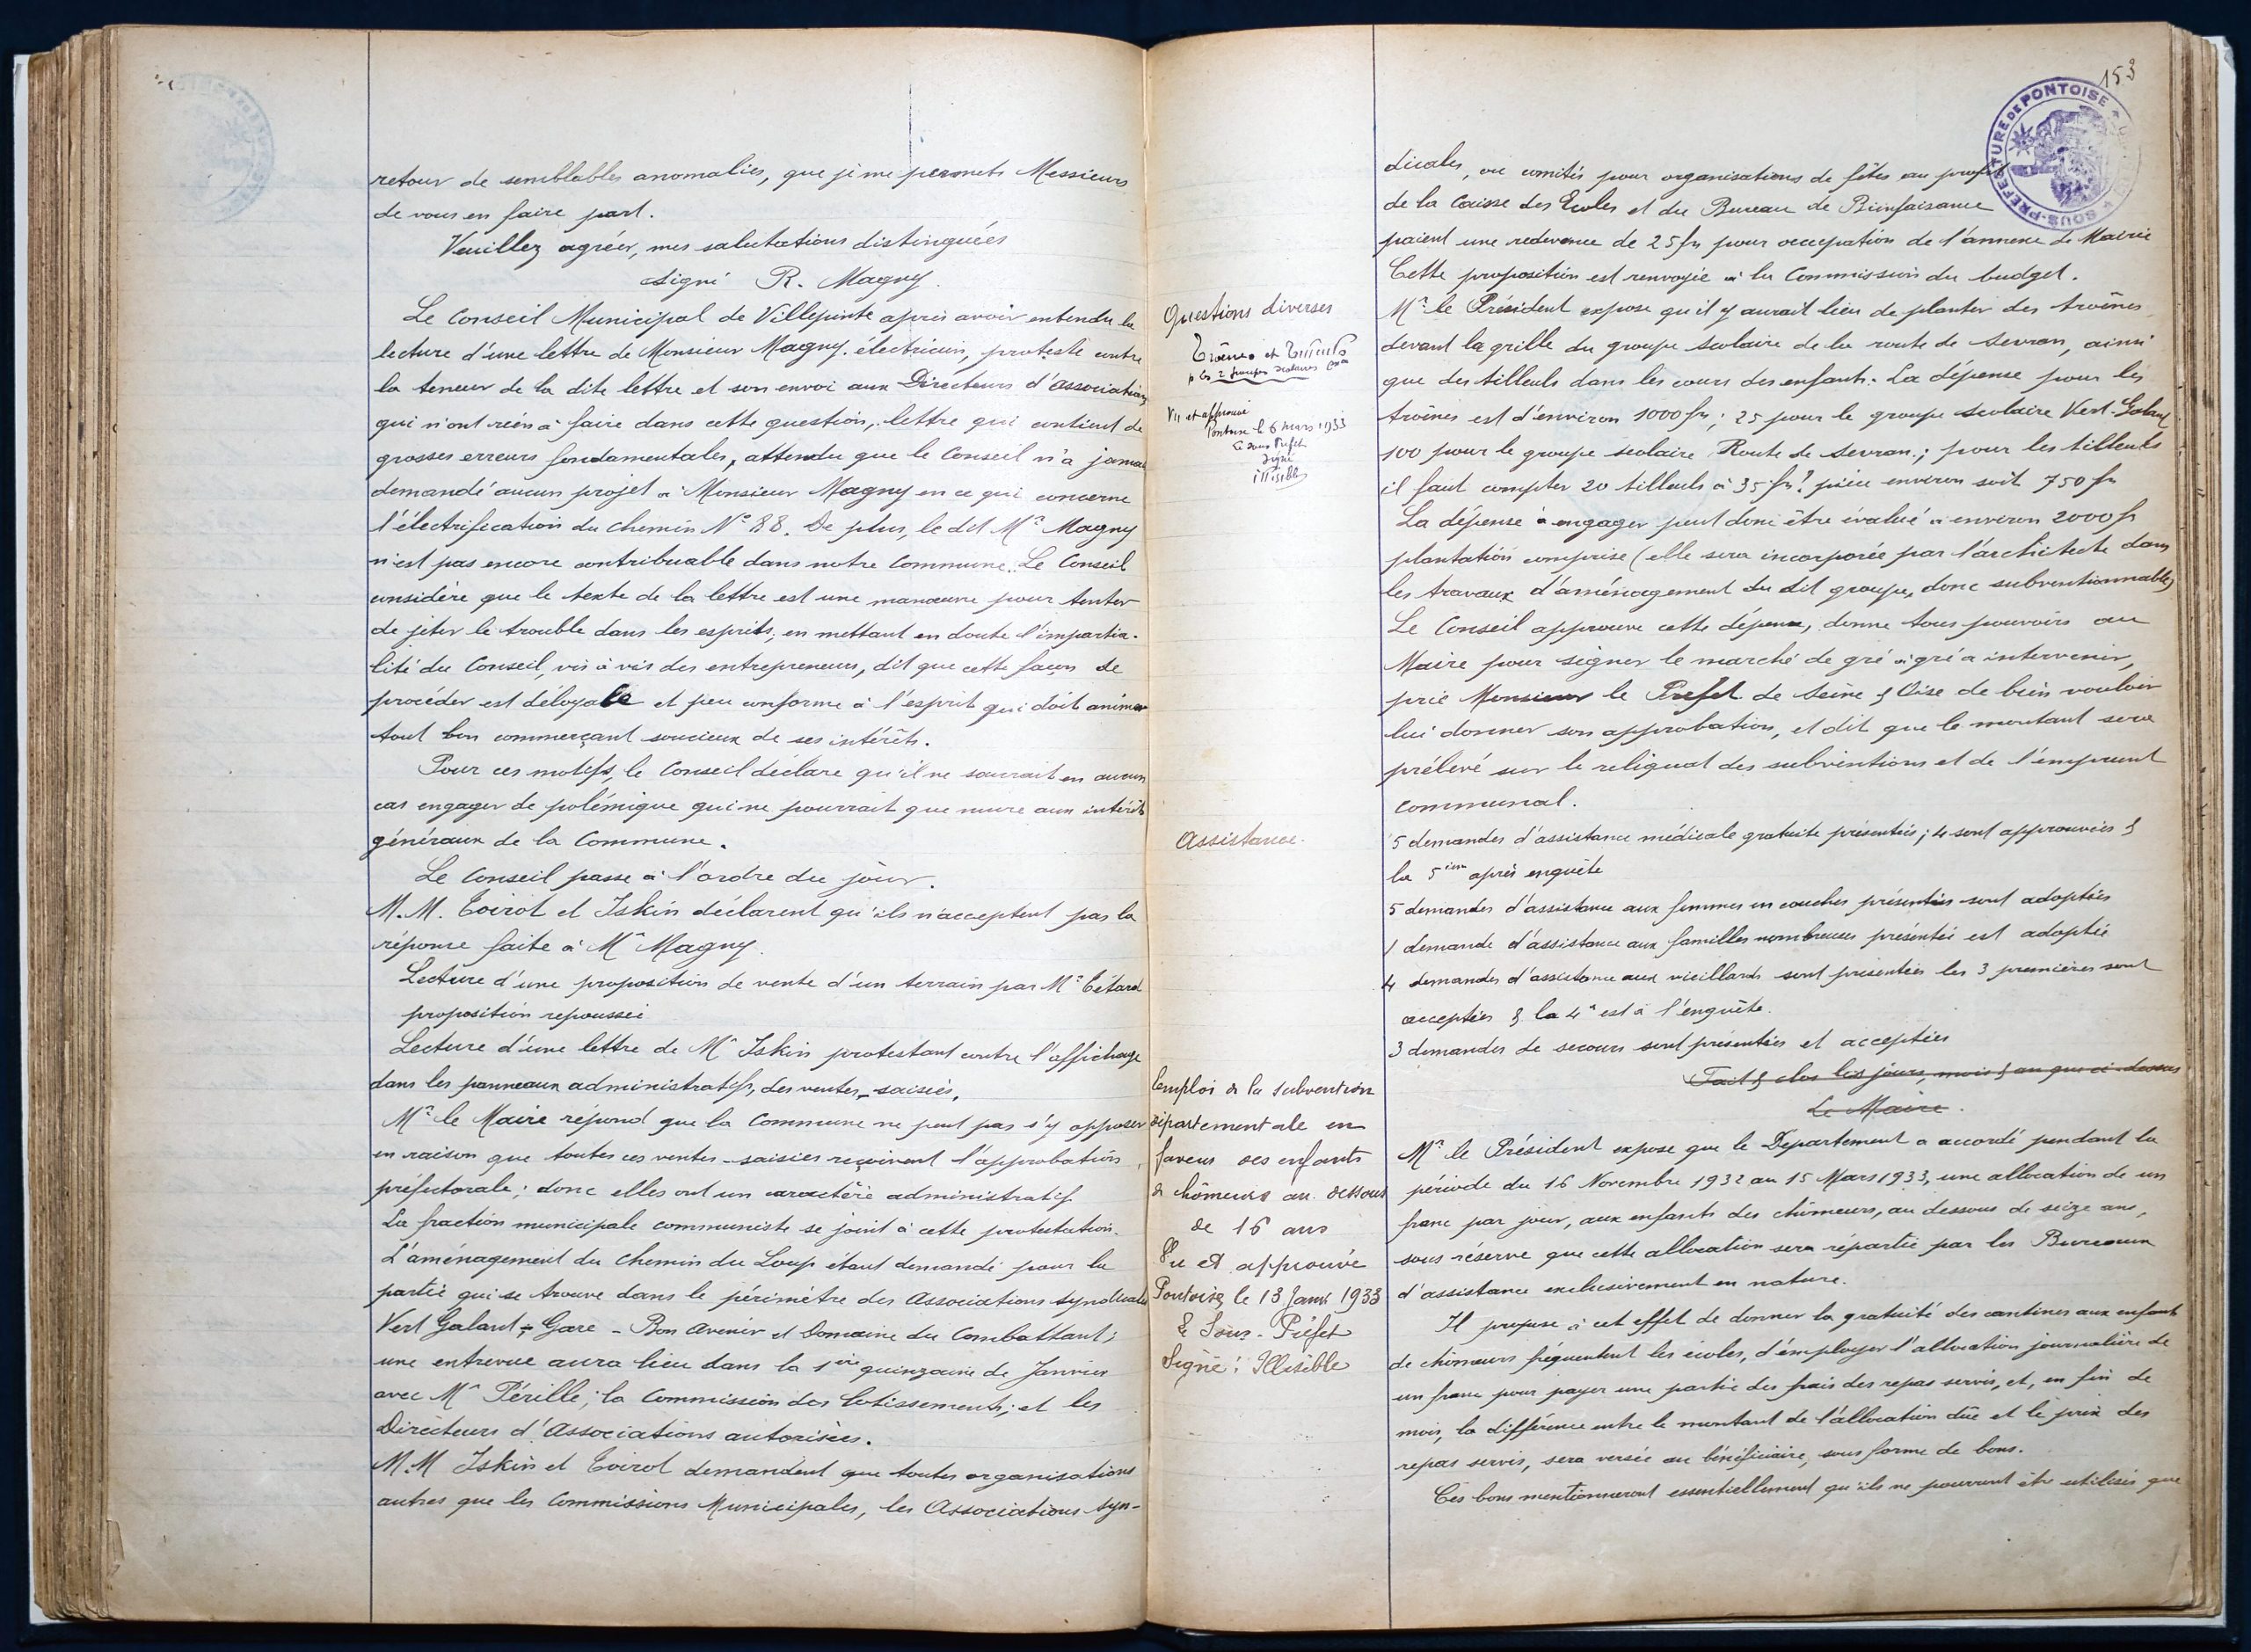 retour de semblables anomalies, que je me permets Messieurs
de vous en faire part.
Veuillez agréer, mes salutations distinguées
signé R. Magny.
Le Conseil Municipal de Villepinte après avoir entendu la
lecture d'une lettre de Monsieur Magny, électricien, proteste contre
la teneur de la dite lettre et son envoi aux Directeurs d'associations
qui n'ont rien à faire dans cette question, lettre qui contient de
grosses erreurs fondamentales, attendu que le Conseil n'a jamais
demandé aucun projet à Monsieur Magny en ce qui concerne
l'électrification du chemin N° 88. De plus, le dit Mr Magny
n'est pas encore contribuable dans notre Commune. Le Conseil
considère que le texte de la lettre est une manœuvre pour tenter
de jeter le trouble dans les esprits, en mettant en doute l'impartia-
lité du Conseil, vis à vis des entrepreneurs, dit que cette façon de
procéder est déloyale et peu conforme à l'esprit qui doit animer
tout bon commerçant soucieux de ses intérêts.
Pour ces motifs, le Conseil déclare qu'il ne saurait en aucun
cas engager de polémique qui ne pourrait que nuire aux intérêts
généraux de la Commune.
Le Conseil passe à l'ordre du jour.
M.M. Toirot et Iskin déclarent qu'ils n'acceptent pas la
réponse faite à Mr Magny.
Lecture d'une proposition de vente d'un terrain par Mr Cétard
proposition repoussée
Lecture d'une lettre de Mr Iskin protestant contre l'affichage
dans les panneaux administratifs, des ventes-saisies.
Mr le Maire répond que la Commune ne peut pas s'y opposer
en raison que toutes ces ventes-saisies reçoivent l'approbation
préfectorale; donc elles ont un caractère administratif
La fraction municipale communiste se joint à cette protestation.
L'aménagement du chemin du Loup étant demandé pour la
partie qui se trouve dans le périmètre des Associations syndicales
Vert Galant-Gare - Bon Avenir et Domaine du Combattant;
une entrevue aura lieu dans la 1ère quinzaine de Janvier
avec Mr Pérille; la Commission des lotissements; et les
Directeurs d'Associations autorisées.
M.M Iskin et Toirot demandent que toutes organisations
autres que les Commissions Municipales, les Associations syn-
153
SOUS-PRÉFECTURE DE PONTOISE
dicales, ou comités pour organisations de fêtes au profit
de la Caisse des Ecoles et du Bureau de Bienfaisance
paient une redevance de 25 frs pour occupation de l'annexe de Mairie
Cette proposition est renvoyée à la Commission du budget.
Questions diverses
Troënes et Tilleuls
p les 2 groupes scolaires
Vu et approuvé
Pontoise le 6 mars 1933
Le Sous Préfet
Signé
illisible
Mr le Président expose qu'il y aurait lieu de planter des troënes
devant la grille du groupe scolaire de la route de Sevran, ainsi
que des tilleuls dans les cours des enfants. La dépense pour les
troënes est d'environ 1000 frs; 25 pour le groupe scolaire Vert-Galant
100 pour le groupe scolaire Route de Sevran; pour les tilleuls
il faut compter 20 tilleuls à 35 frs pièce environ soit 750 frs
La dépense à engager peut donc être évalué à environ 2000 fr
plantation comprise (elle sera incorporée par l'architecte dans
les travaux d'aménagement du dit groupe, donc subventionnable)
Le Conseil approuve cette dépense, donne tous pouvoirs au
Maire pour signer le marché de gré à gré à intervenir,
prie Monsieur le Préfet de Seine & Oise de bien vouloir
lui donner son approbation, et dit que le montant sera
prélevé sur le reliquat des subventions et de l'emprunt
communal.
Assistance.
5 demandes d'assistance médicale gratuite présentées; 4 sont approuvées &
la 5ième après enquête
5 demandes d'assistance aux femmes en couches présentées sont adoptées
1 demande d'assistance aux familles nombreuses présentée est adoptée
4 demandes d'assistance aux vieillards sont présentées les 3 premières sont
acceptées & la 4e est à l'enquête.
3 demandes de secours sont présentées et acceptées
Fait & clos les jours, mois & an que ci-dessus
Le Maire.
Emploi de la subvention
départementale en
faveur des enfants
de chômeurs au dessous
de 16 ans
Vu et approuvé
Pontoise, le 13 Janv 1933
Le Sous-Préfet
Signé: Illisible
Mr le Président expose que le Département a accordé pendant la
période du 16 Novembre 1932 au 15 Mars 1933, une allocation de un
franc par jour, aux enfants des chômeurs, au dessous de seize ans,
sous réserve que cette allocation sera répartie par les Bureaux
d'assistance exclusivement en nature.
Il propose à cet effet de donner la gratuité des cantines aux enfants
de chômeurs fréquentent les écoles, d'employer l'allocation journalière de
un franc pour payer une partie des frais des repas servis, et, en fin de
mois, la différence entre le montant de l'allocation dûe et le prix des
repas servis, sera versée au bénéficiaire, sous forme de bons.
Ces bons mentionneront essentiellement qu'ils ne pourront être utilisés que